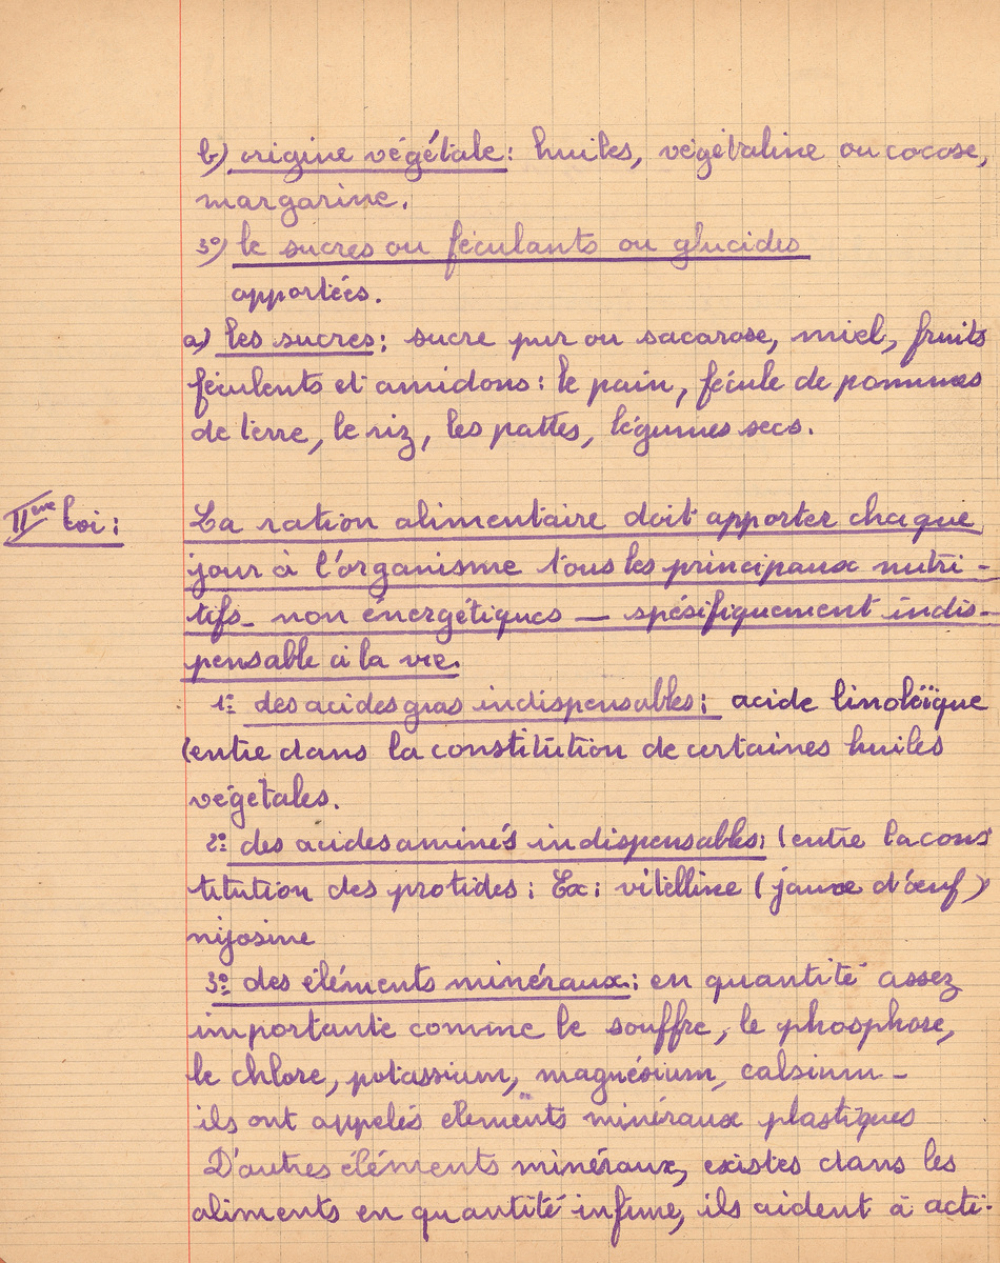 b) origine végétale: huiles, végétaline ou cocose,
margarine.
3°) le sucres ou féculants ou glucides
apportées.
a) les sucres: sucre pur ou sacarose, miel, fruits
féculents et amidons: le pain, fécule de pommes
de terre, le riz, les pattes, légumes secs.
IIème loi: La ration alimentaire doit apporter chaque
jour à l'organisme tous les principaux nutri-
tifs - non énergétiques - spésifiquement indis-
pensable à la vie.
1: des acides gras indispensables: acide linoloïque
(entre dans la constitution de certaines huiles
végétales.
2: des acides aminés indispensables: (entre la cons
titution des protides: Ex: vitelline (jaune d'œuf)
nijosine
3: des éléments minéraux: en quantité assez
importante comme le souffre, le phosphore,
le chlore, potassium, magnésium, calsium -
ils ont appelés éléments minéraux plastiques
D'autres éléments minéraux, existes dans les
aliments en quantité infime, ils aident à acti-